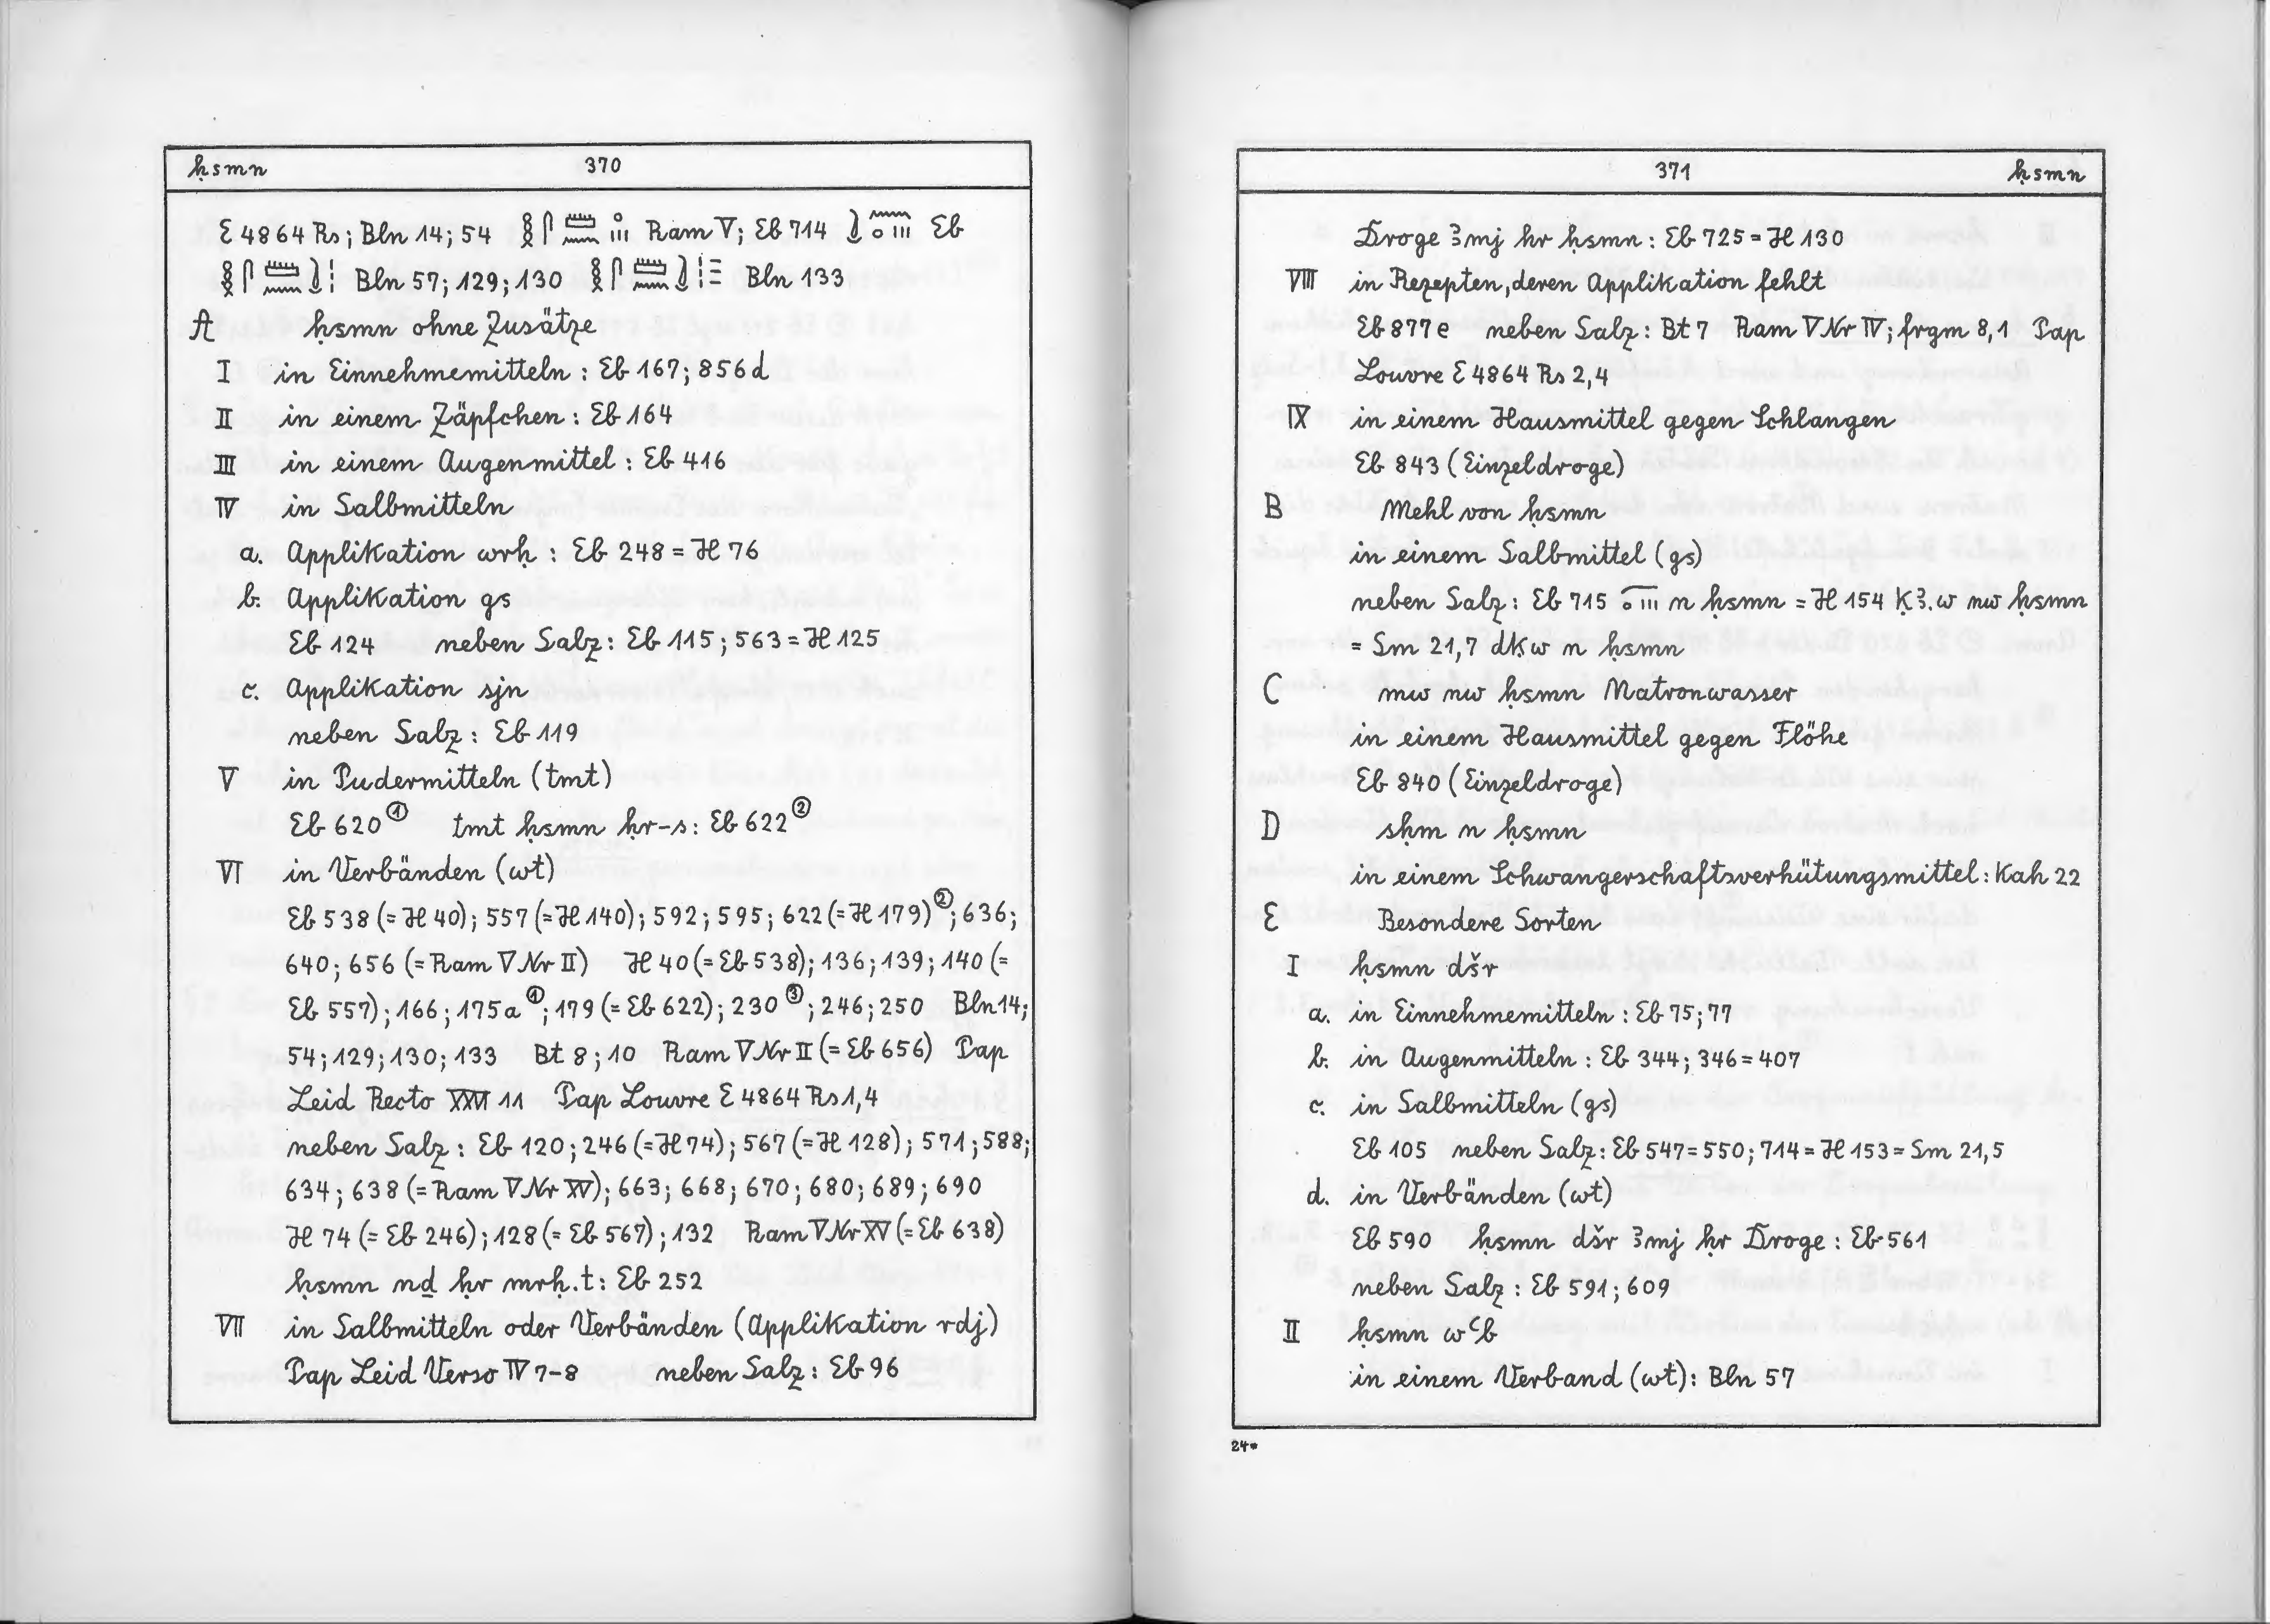 ḥsmn 370
E 4864 Rs; Bln 14; 54 𓎛𓋴𓏠𓈖 Ram V; Eb 714 Eb
𓎛𓋴𓏠𓈖 Bln 57; 129; 130 𓎛𓋴𓏠𓈖 Bln 133
A ḥsmn ohne Zusätze
I in Einnehmemitteln : Eb 167; 856d
II in einem Zäpfchen : Eb 164
III in einem Augenmittel : Eb 416
IV in Salbmitteln
a. Applikation wrḥ : Eb 248 = H 76
b. Applikation gs
Eb 124 neben Salz : Eb 115; 563 = H 125
c. Applikation sjn
neben Salz : Eb 119
V in Pudermitteln (tmt)
Eb 620 ① tmt ḥsmn ḥr-s : Eb 622 ②
VI in Verbänden (wt)
Eb 538 (= H 40); 557 (= H 140); 592; 595; 622 (= H 179) ②; 636;
640; 656 (= Ram V Nr II) H 40 (= Eb 538); 136; 139; 140 (=
Eb 557); 166; 175a ①; 179 (= Eb 622); 230 ③; 246; 250 Bln 14;
54; 129; 130; 133 Bt 8; 10 Ram V Nr II (= Eb 656) Pap
Leid Recto XXVI 11 Pap Louvre E 4864 Rs 1,4
neben Salz : Eb 120; 246 (= H 74); 567 (= H 128); 571; 588;
634; 638 (= Ram V Nr XV); 663; 668; 670; 680; 689; 690
H 74 (= Eb 246); 128 (= Eb 567); 132 Ram V Nr XV (= Eb 638)
ḥsmn nḏ ḥr mrḥ.t : Eb 252
VII in Salbmitteln oder Verbänden (Applikation rdj)
Pap Leid Verso IV 7-8 neben Salz : Eb 96
371 ḥsmn
Droge ꜣmj ḥr ḥsmn : Eb 725 = H 130
VIII in Rezepten, deren Applikation fehlt
Eb 877e neben Salz : Bt 7 Ram V Nr IV; frgm 8,1 Pap
Louvre E 4864 Rs 2,4
IX in einem Hausmittel gegen Schlangen
Eb 843 (Einzeldroge)
B Mehl von ḥsmn
in einem Salbmittel (gs)
neben Salz : Eb 715 n ḥsmn = H 154 ḳꜣ.w nw ḥsmn
= Sm 21,7 dḳw n ḥsmn
C mw nw ḥsmn Natronwasser
in einem Hausmittel gegen Flöhe
Eb 840 (Einzeldroge)
D sḥm n ḥsmn
in einem Schwangerschaftsverhütungsmittel : Kah 22
E Besondere Sorten
I ḥsmn dšr
a. in Einnehmemitteln : Eb 75; 77
b. in Augenmitteln : Eb 344; 346 = 407
c. in Salbmitteln (gs)
Eb 105 neben Salz : Eb 547 = 550; 714 = H 153 = Sm 21,5
d. in Verbänden (wt)
Eb 590 ḥsmn dšr ꜣmj ḥr Droge : Eb 561
neben Salz : Eb 591; 609
II ḥsmn wꜥb
in einem Verband (wt) : Bln 57
24*